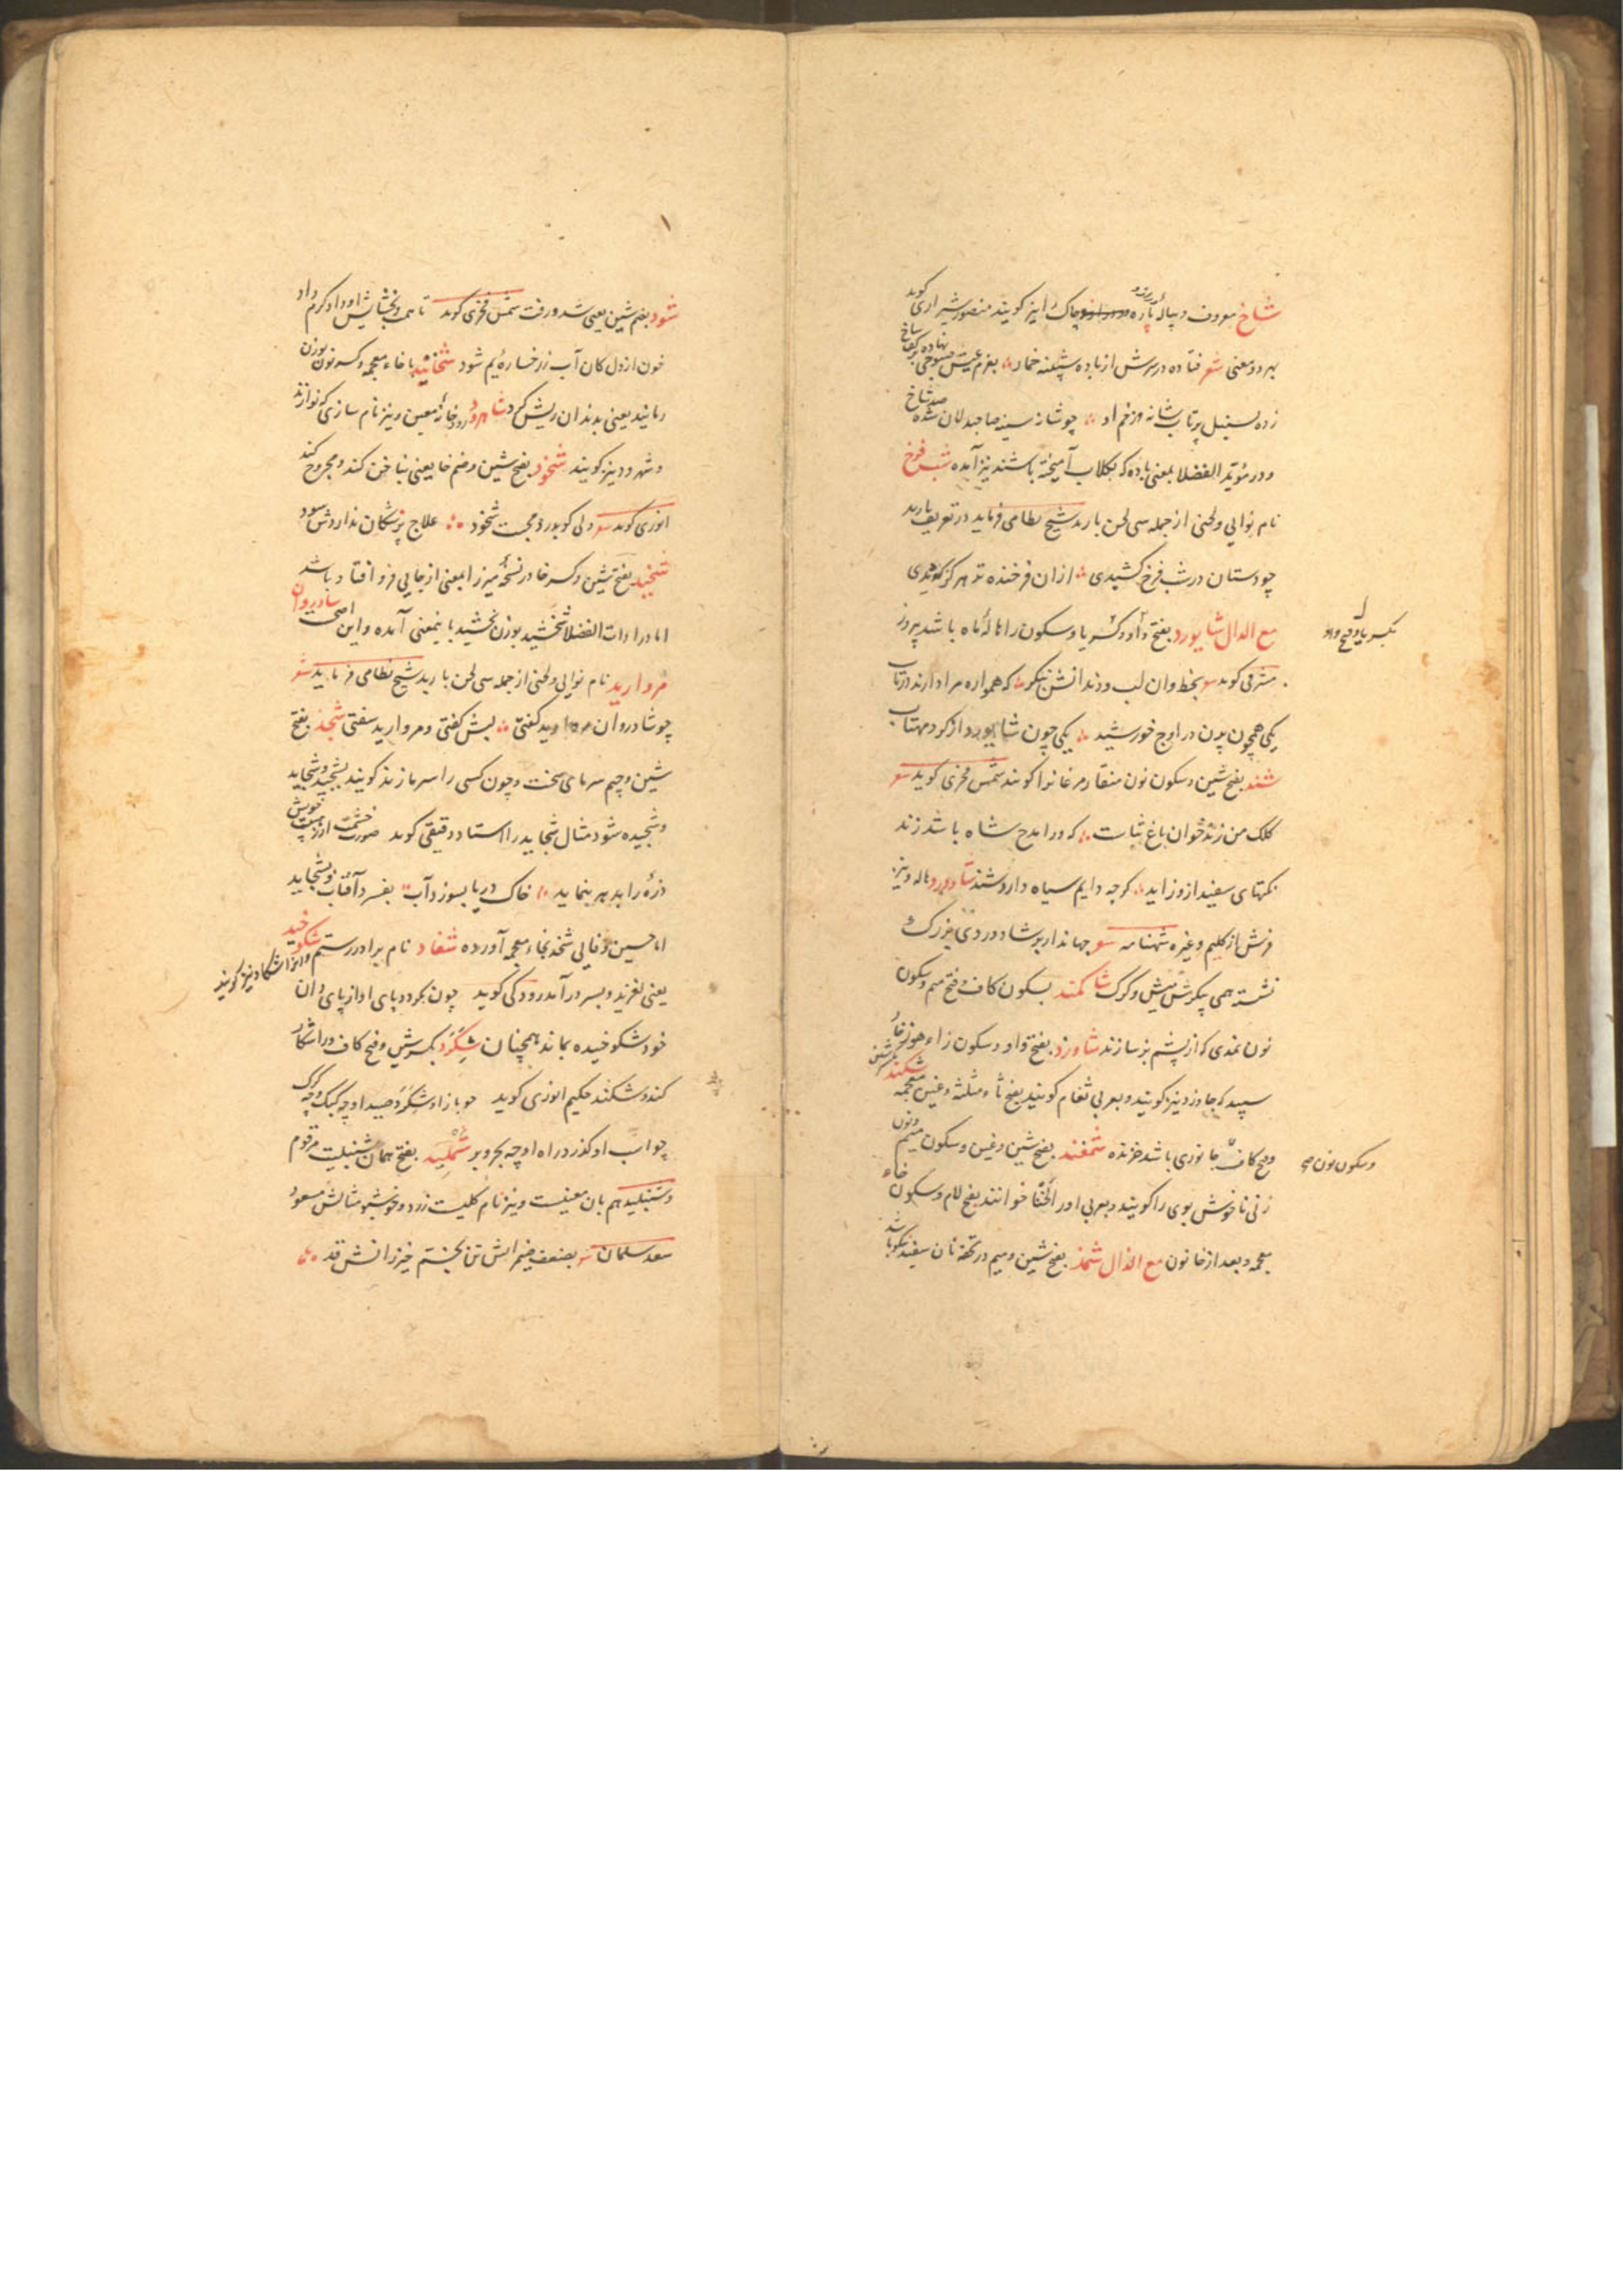 شاخ معروف و پیالهٔ پاره و چاک را نیز گویند منصور شیرازی گوید
بهر دو معنی شعر فتاده در سرش از باده شبینه خمار بعزم عیش صبوحی نهاده بر کف شاخ
زده بسنبل پرتاب شانه وز غم او چو شانه سینه صاحبدلان شده صد شاخ
و در مؤید الفضلا بمعنی باده که بگلاب آمیخته باشند نیز آمده شب فرخ
نام نوایی و لحنی از جمله سی لحن باربد شیخ نظامی فرماید در تعریف باربد
چو دستان در شب فرخ کشیدی از ان فرخنده تر هرگز که دیدی
مع الدال شایورد بفتح واو و کسر یا و سکون را هالهٔ ماه باشد پیروز
بکسر یا و فتح واو
مشرقی گوید شعر بخط وان لب و دندانش بنگر که همواره مرا دارند در تاب
یکی همچون پرن در اوج خورشید یکی چون شایورد از گرد مهتاب
شند بفتح شین و سکون نون منقار مرغانرا گویند شمس فخری گوید شعر
کلک من زندخوان باغ ثناست که ورا مدح شاه باشد زند
نکتهای سفید ازو زاید گرچه دایم سیاه دارد شند شادورد هاله و نیز
فرش از گلیم و غیره شهنامه شعر جهاندار بر شادوردی بزرگ
نشسته همی پیکرش میش و گرگ شاکمند بسکون کاف و فتح میم و سکون
نون نمدی که از پشم بز سازند شاورد بفتح واو و سکون زاء هوز خار
سپید که جاورد نیز گویند و بعربی ثغام گویند بفتح ثاء مثلثه و غین معجمه شکند بکسر شین
و فتح کاف جانوری باشد خزنده شمغند بفتح شین و غین و سکون میم و نون
و سکون نون صح
زنی ناخوش بوی را گویند و بعربی او را لخنا خوانند بفتح لام و سکون خاء
معجمه و بعد از خا نون مع الذال شمذ بفتح شین و میم در تحفه نان سفید نیکو باشد
شود بضم شین یعنی شد و رفت شمس فخری گوید تا همت و بخشایش او داد کرم داد
خون از دل کان آب ز رخساره یم شود شخانید با خاء معجمه و کسر نون بوزن
رمانید یعنی بدندان ریش کرد شاهرود رودخانهٔ معین و نیز نام سازی که نوازند
و شهرود نیز گویند شخود بفتح شین و ضم خا یعنی بناخن کند و مجروح کند
انوری گوید شعر دلی کو بدرد محبت شخود علاج پزشکان ندارد سود
شخید بفتح شین و کسر خا در نسخهٔ میرزا بمعنی از جایی فرو افتاد باشد
اما در ادات الفضلا شخشید بوزن بخشید باینمعنی آمده و این اصح شادروان
مروارید نام نوایی و لحنی از جمله سی لحن باربد شیخ نظامی فرماید شعر
چو شادروان مروارید گفتی لبش گفتی و مروارید سفتی شجد بفتح
شین و جیم سرمای سخت و چون کسی را سرما زند گویند بشجید و شجاید
و شجیده شود مثال شجاید را استاد دقیقی گوید صورت خشمت ار ز هیبت خویش
ذره را بدهر بنماید خاک دریا بسوزد آب بفسرد آفتاب و بشجاید
اما حسین وفایی شخد بخاء معجمه آورده شغاد نام برادر رستم و انرا شکاد نیز گویند شکوخید
یعنی لغزید و بسر درآمد رودکی گوید چون بگردد پای او از پای دان
خود شکوخیده بماند همچنان شگرد بکسر شین و فتح کاف و را شکار
کند و شکند حکیم انوری گوید چو باز او شگرد صید او چه کبک و چه کرگ
چو اب او گذرد راه او چه بحر و بر شملید بفتح همان شنبلیت مرقوم
و شنبلید هم بان معنیست و نیز نام گلیست زرد و خوشبو مثالش مسعود
سعد سلمان شعر بضعف ضیمرانش تن بخستم خیزرانش قد